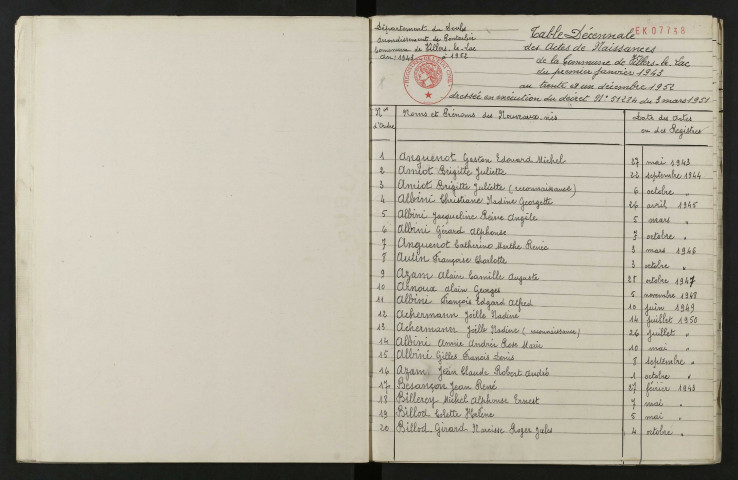 Département du Doubs
Arrondissement de Pontarlier
Commune de Villers-le-Lac
An: 1943 à 1952
EK 07738
Table Décennale
des Actes de Naissances
de la Commune de Villers-le-Lac
du premier janvier 1943
au trente et un décembre 1952
dressée en exécution du décret N° 51284 du 3 mars 1951
Nos d'Ordre Noms et Prénoms des Nouveaux-nés Date des Actes ou des Registres
1 Anguenot Gaston Edouard Michel 27 mai 1943
2 Amiot Brigitte Juliette 22 septembre 1944
3 Amiot Brigitte Juliette (reconnaissance) 6 octobre "
4 Albini Christiane Nadine Georgette 26 avril 1945
5 Albini Jacqueline Reine Angèle 5 mars "
6 Albini Gérard Alphonse 7 octobre "
7 Anguenot Catherine Marthe Renée 3 mars 1946
8 Aubin Françoise Charlotte 3 octobre "
9 Azam Alain Camille Auguste 28 octobre 1947
10 Arnoux Alain Georges 5 novembre 1948
11 Albini François Edgard Alfred 10 juin 1949
12 Achermann Joëlle Nadine 14 juillet 1950
13 Achermann Joëlle Nadine (reconnaissance) 26 juillet "
14 Albini Annie Andrée Rose Marie 10 mai "
15 Albini Gilles Francis Denis 8 septembre "
16 Azam Jean Claude Robert André 1 octobre "
17 Besançon Jean René 27 février 1943
18 Billerey Michel Alphonse Ernest 7 mai "
19 Billod Colette Hélène 5 mai "
20 Billod-Girard Narcisse Roger Jules 4 octobre "